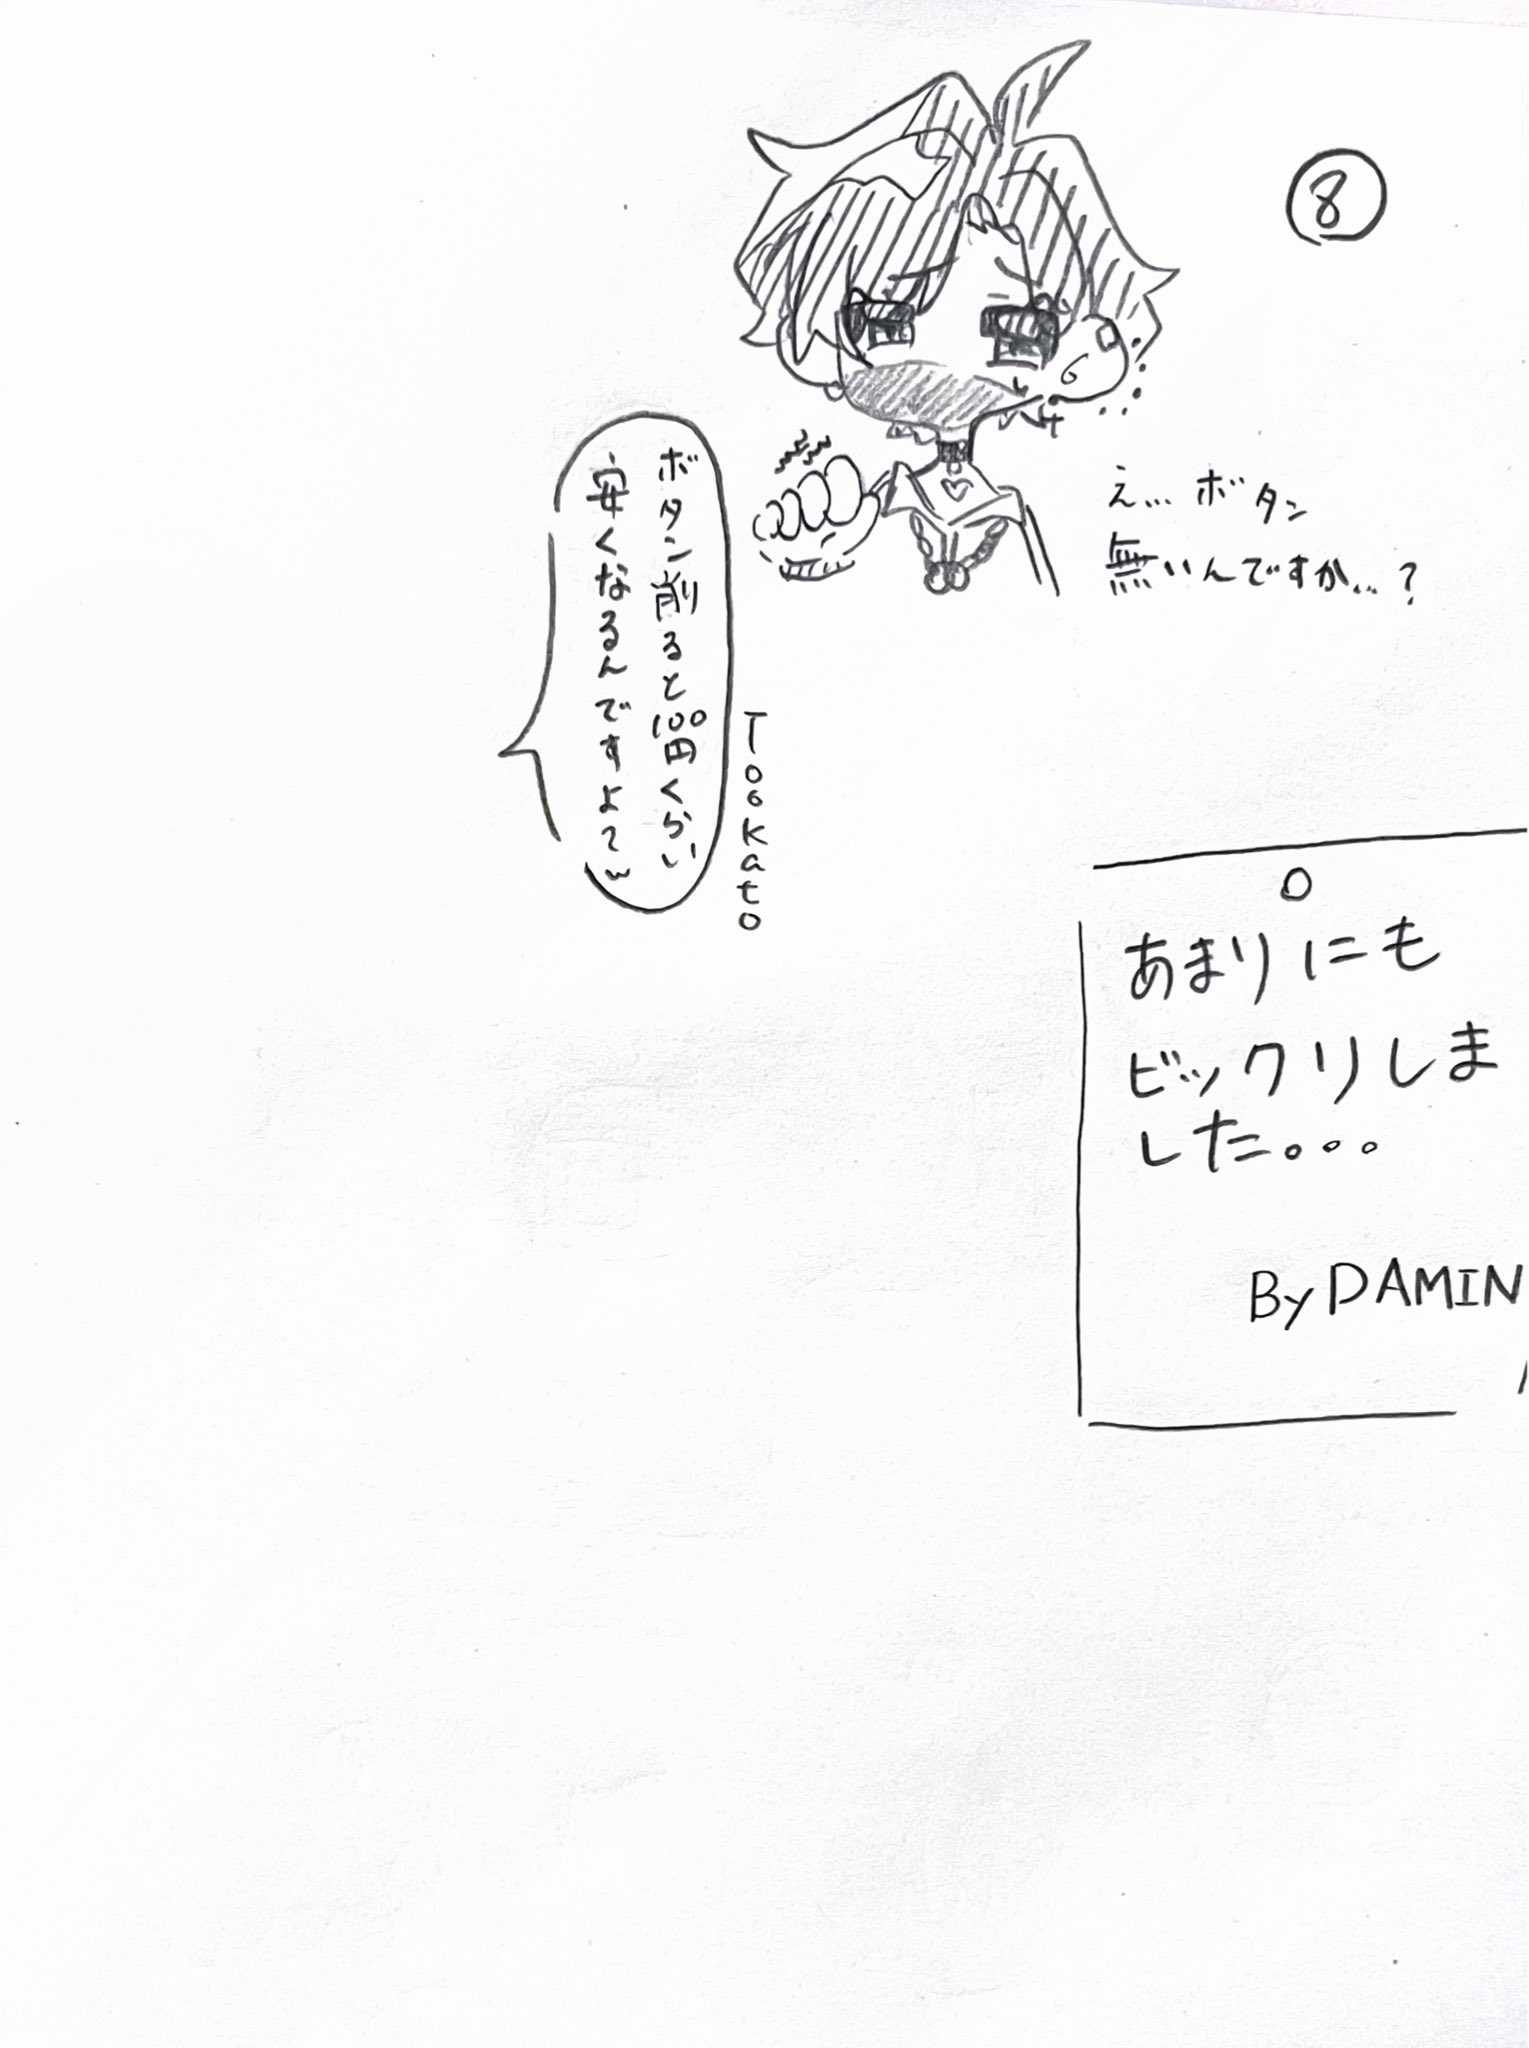 ⑧
え…ボタン
無いんですか…?
ボタン削ると100円くらい
安くなるんですよてw
Tookato
あまりにも
ビックリしま
した。。。
By DAMIN